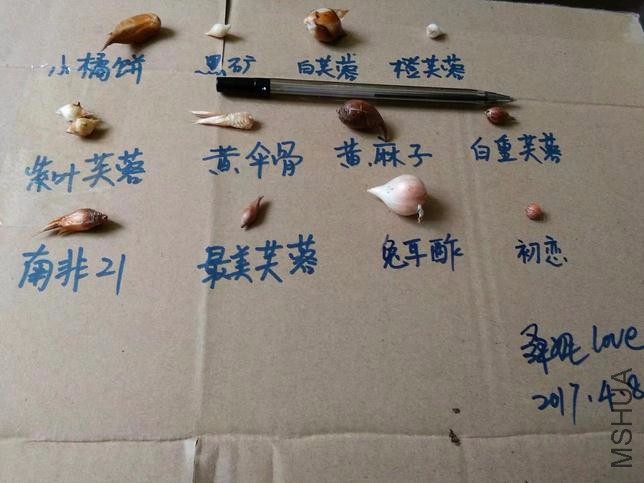 小橘饼 黑矿 白芙蓉 橙芙蓉
紫叶芙蓉 黄伞骨 黄麻子 白重芙蓉
南非21 最美芙蓉 兔耳酢 初恋
love
2017.4.8
MSHUA